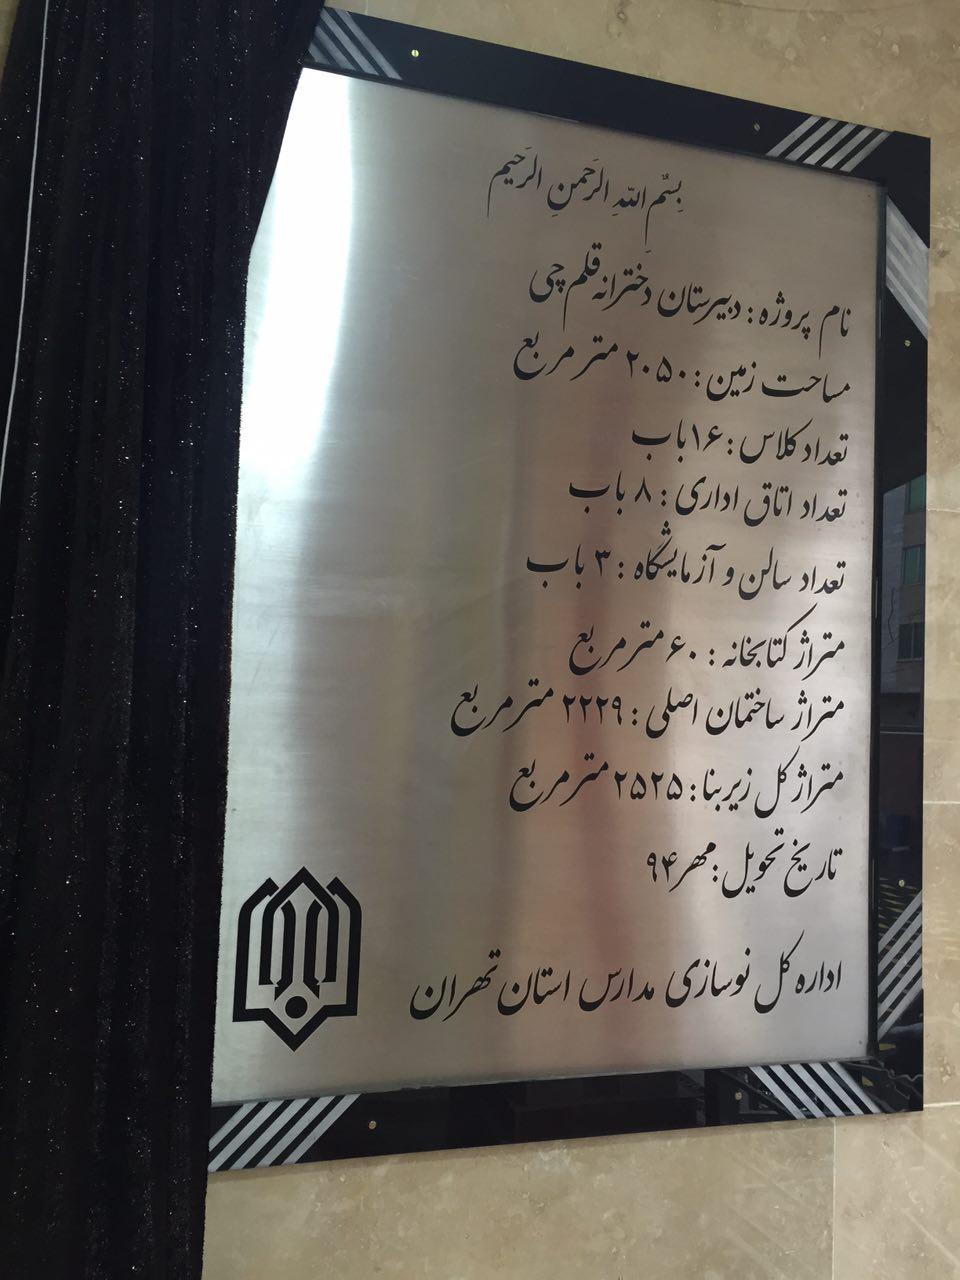 بِسْمِ اللّهِ الرَحمنِ الرَحیم
نام پروژه : دبیرستان دخترانه قلم چی
مساحت زمین : ۲۰۵۰ متر مربع
تعداد کلاس : ۱۶ باب
تعداد اتاق اداری : ۸ باب
تعداد سالن و آزمایشگاه : ۳ باب
متراژ کتابخانه : ۶۰ متر مربع
متراژ ساختمان اصلی : ۲۲۲۹ متر مربع
متراژ کل زیربنا : ۲۵۲۵ متر مربع
تاریخ تحویل : مهر ۹۴
اداره کل نوسازی مدارس استان تهران